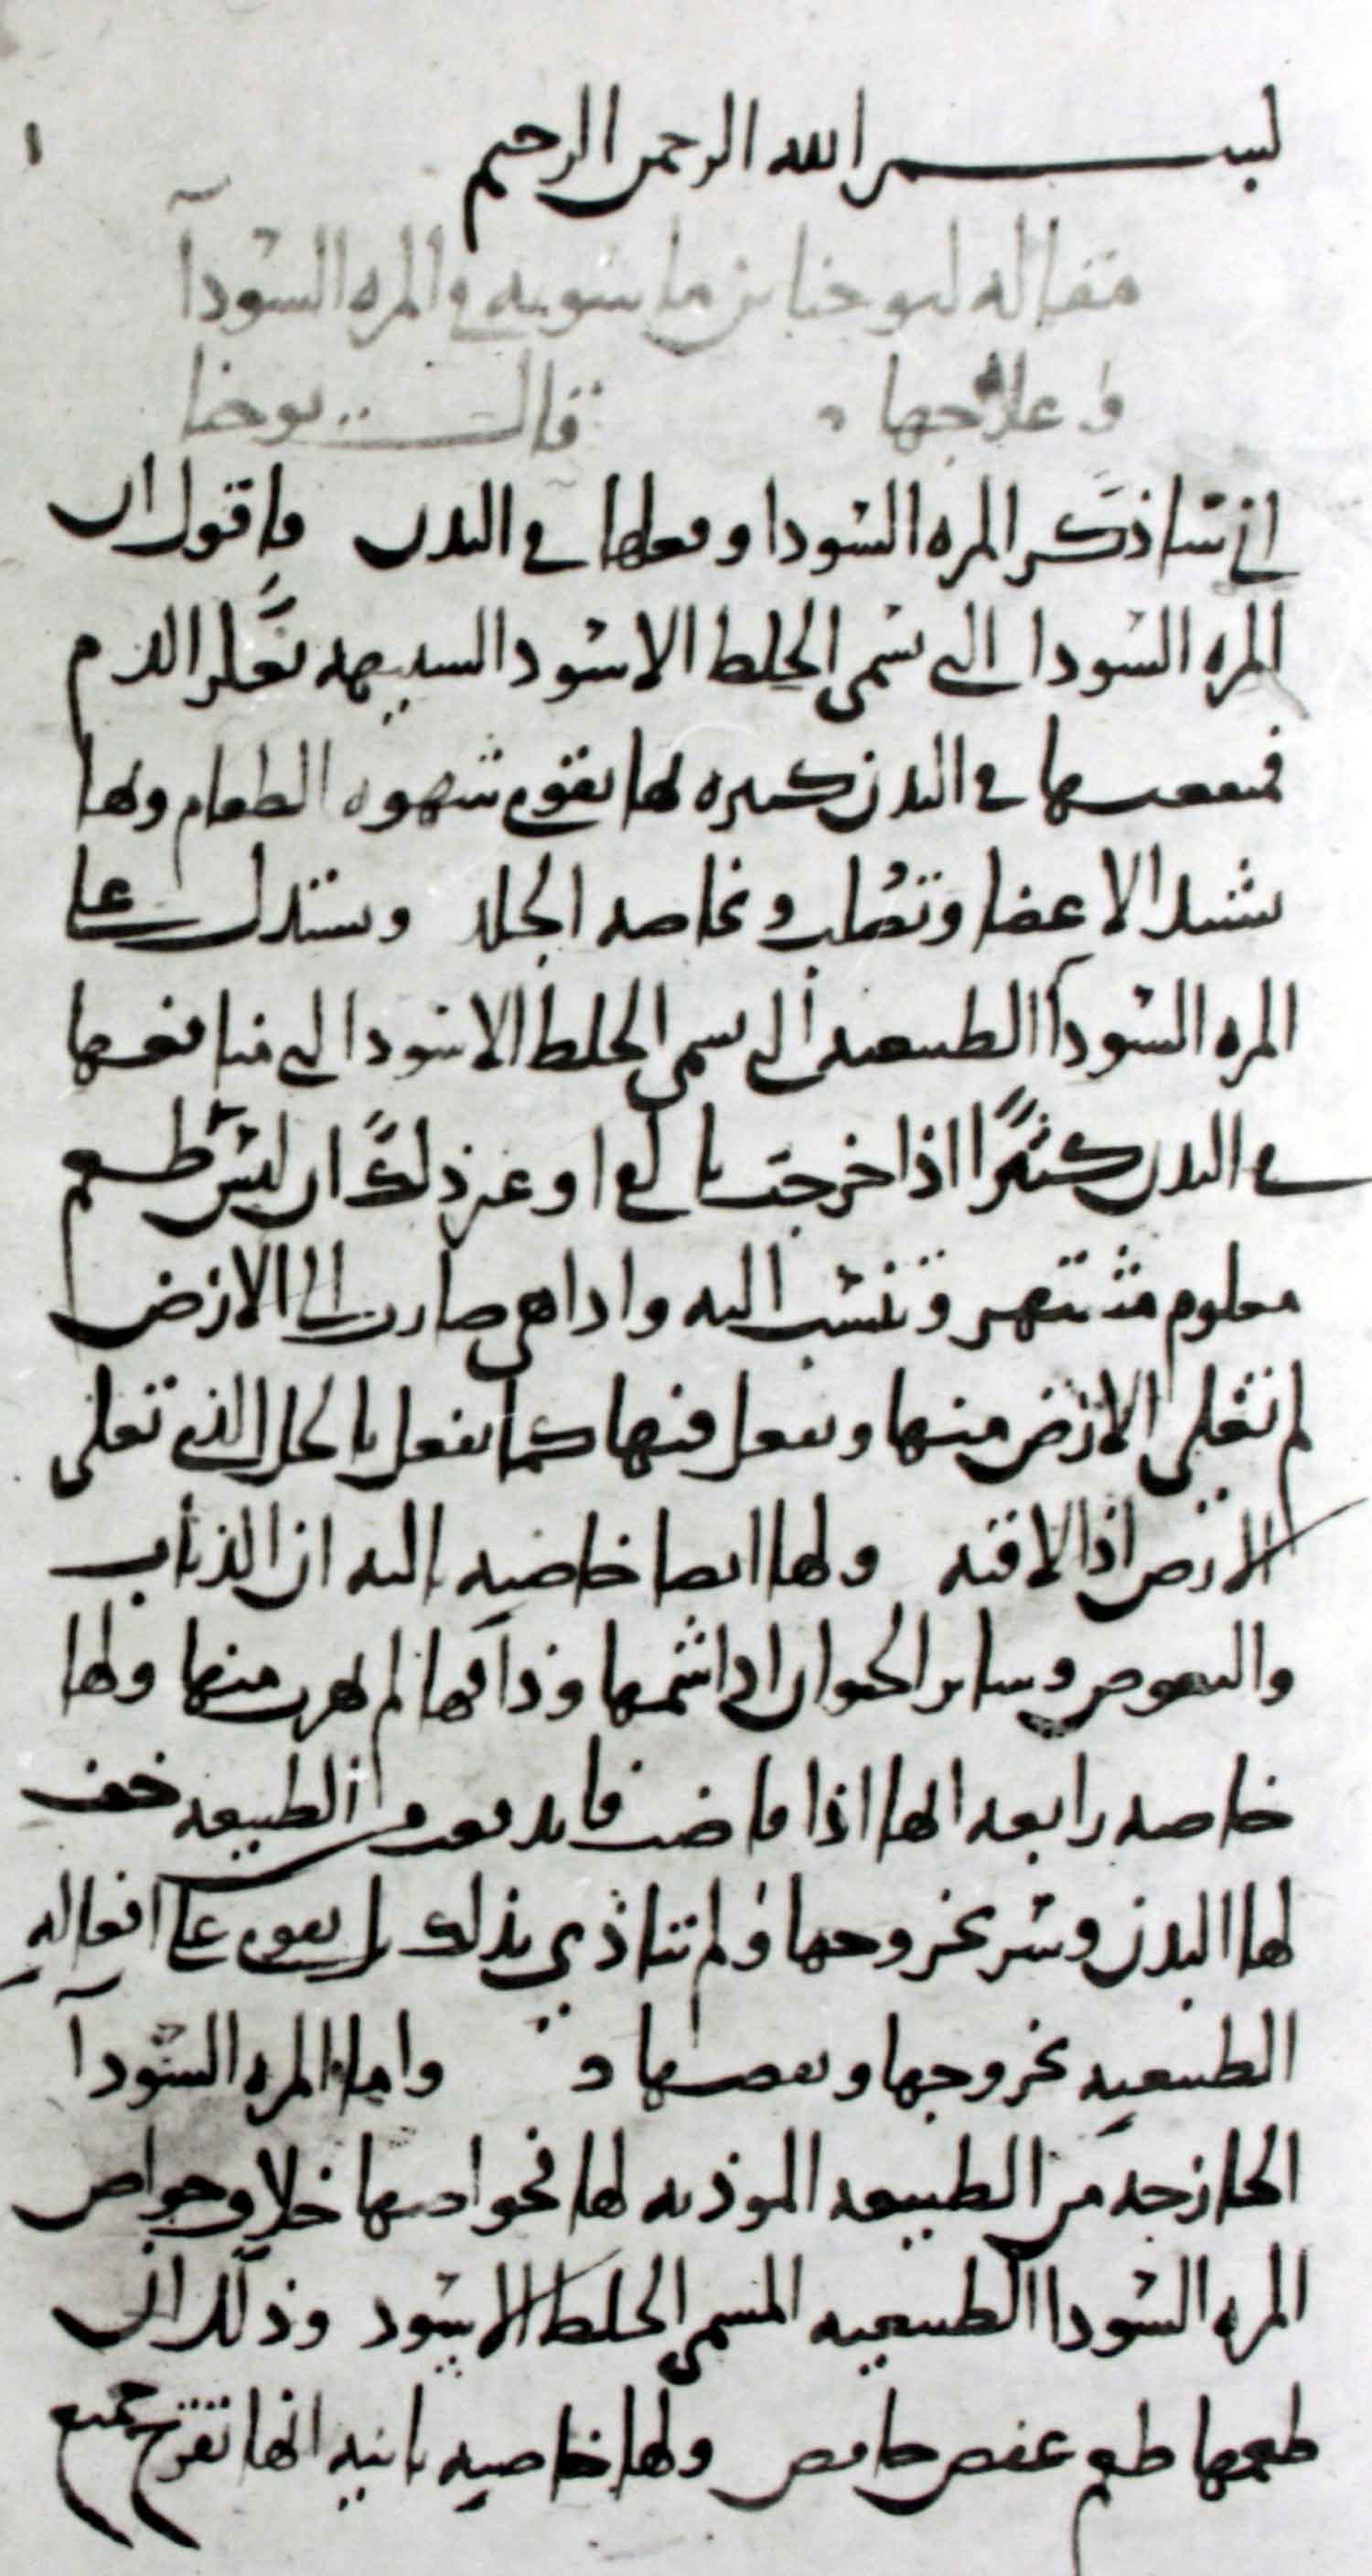 ١
بسم الله الرحمن الرحيم
مقاله ليوحنا بن ماسويه في المره السودآ
وعلاجها قال يوحنا
المره السودا وفعلها في البدن واقول ان
المره السودا التي تسمى الخلط الاسود الشبيهه بعكر الدم
فمنفعتها في البدن كثيره لها تقوي شهوه الطعام ولها
تشد الاعضا وتصلب وبخاصه الجلد ويستدل على
المره السودآ الطبيعيه التي تسمى الخلط الاسود التي منافعها
في البدن كثيرا اذا خرجت بالقي او غير ذلك ان ليس طعم
معلوم وتنسب اليه واذا هي صارت الى الارض
لم تغلي الارض منها وتفعل فيها كما يفعل بالخل الذي تغلي
الارض اذا لاقته ولها ايضا خاصيه ثالثه ان الذباب
والبعوض وساير الحيوان اذا شمها وذاقها لم يهرب منها ولها
خاصه رابعه انها اذا فاضت الطبيعه خف
لها البدن وسر بخروجها ولم تتاذي بذلك بل يقوى على افعاله
الطبيعيه بخروجها ونقصها واما المره السودآ
الخارجه من الطبيعه الموذيه لها فخواصها خلاف خواص
المره السودا الطبيعيه المسمى الخلط الاسود وذلك ان
طعمها طعم عفص حامض ولها خاصيه ثانيه انها تقرح جميع